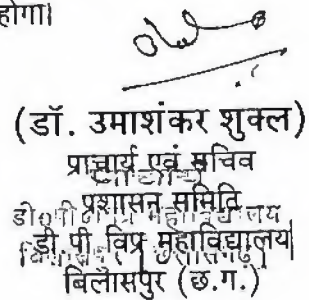 होगा।
(डॉ. उमाशंकर शुक्ल)
प्राचार्य एवं सचिव
प्रशासन समिति
डी.पी. विप्र महाविद्यालय
बिलासपुर (छ.ग.)